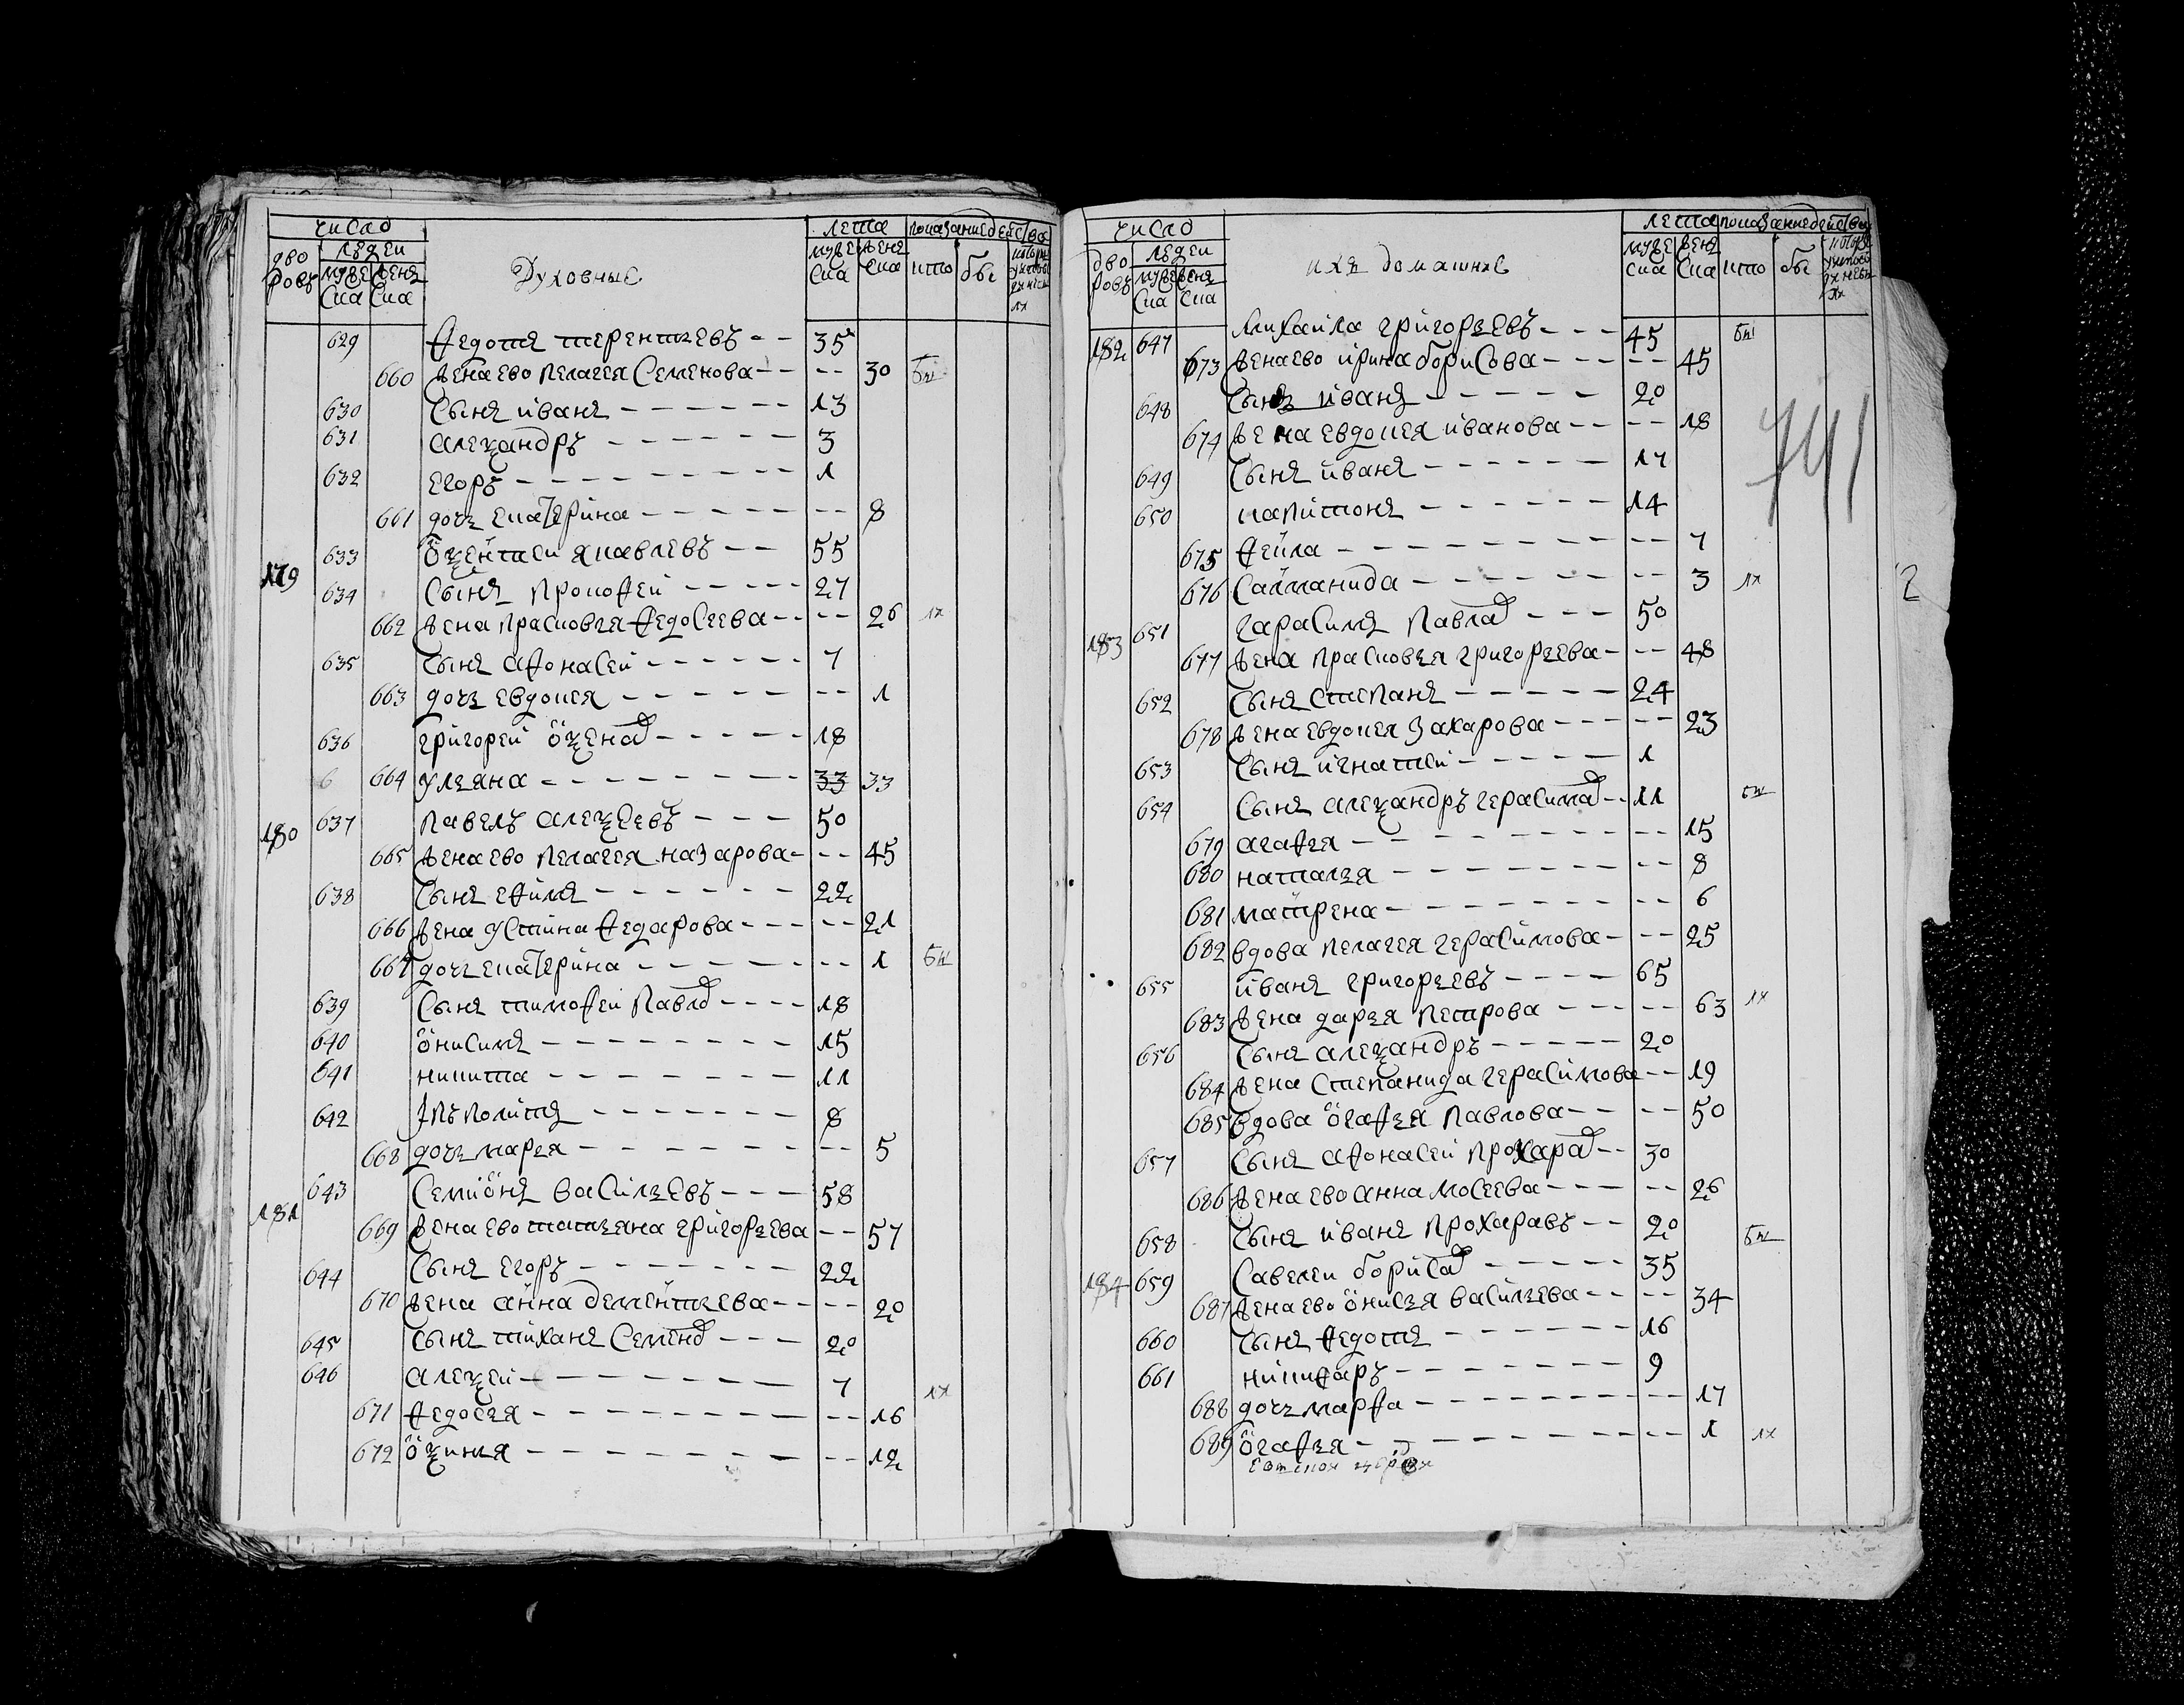 число
лета
показание действа
дво
ровъ
людеи
муже
ска
женъ
ска
Духовные
муже
ска
женъ
ска
кто
бы
629 Федотъ терентьевъ - - 35
660 жена ево пелагея Семенова - - - - 30 бы
630 Сынъ иванъ - - - - - - 13
631 алеѯандръ - - - - - - 3
632 егоръ - - - - - - 1
661 дочь екатерина - - - - - - - 8
179 633 оѯентеи яковлевъ - - 55
634 Сынъ прокофеи - - - - - 27
662 жена прасковья федосеева - - - - 26 их
635 Сынъ афонасеи - - - - - - 7
663 дочь евдокея - - - - - - - 1
636 григореи оѯенов - - - - - 18
6 664 ульяна - - - - - - - - 33 33
180 637 павелъ алеѯеевъ - - - 50
665 жена ево пелагея назарова - - - 45
638 Сынъ ефимъ - - - - - - 22
666 жена устина федарова - - - - - 21
667 дочь екатерина - - - - - - - 1 бы
639 Сынъ тимофеи павлов - - - - 18
640 онисимъ - - - - - - - - 15
641 никита - - - - - - - - 11
642 іпъполитъ - - - - - - - 8
668 дочь марея - - - - - - - - 5
181 643 Семионъ васильевъ - - - 58
669 жена ево татьяна григорьева - - 57
644 Сынъ егоръ - - - - - - - 22
670 жена анна дементьева - - - - 20
645 Сынъ тиханъ Семенов - - - 20
646 алеѯеи - - - - - - - - 7
671 федосья - - - - - - - - - 16 их
672 оѯинья - - - - - - - - - 12
число
лета
показание действа
дво
ровъ
людеи
муже
ска
женъ
ска
ихъ домашние
муже
ска
женъ
ска
кто
бы
182 647 михаила григорьевъ - - - 45 бы
673 жена ево ирина борисова - - - - - 45
648 Сынъ иванъ - - - - - - 20
674 жена евдокея иванова - - - - 18
649 Сынъ иванъ - - - - - - 17
741
650 капитонъ - - - - - - - 14
675 фекла - - - - - - - - - - 7
676 Салманида - - - - - - - - 3 их
2
183 651 гарасимъ павлов - - - 50
677 жена прасковья григорьева - - - 48
652 Сынъ степанъ - - - - - 24
678 жена евдокея захарова - - - - - 23
653 Сынъ игнатеи - - - - - 1
654 Сынъ алеѯандръ герасимов - - 11 бы
679 агафья - - - - - - - - - 15
680 наталья - - - - - - - - 8
681 матрена - - - - - - - - - 6
682 вдова пелагея герасимова - - - 25
655 иванъ григорьевъ - - - - 65
683 жена дарья петрова - - - - - 63 их
656 Сынъ алеѯандръ - - - - - 20
684 жена степанида герасимова - - 19
685 вдова огафья павлова - - - - 50
657 Сынъ афонасеи прохаров - - 30
686 жена ево анна мосеева - - - - - 26
658 Сынъ иванъ прохаравъ - - 20 бы
184 659 Савелеи борисов - - - - - 35
687 жена ево онисья васильева - - - - 34
660 Сынъ федотъ - - - - - - - 16
661 никифаръ - - - - - - - 9
688 дочь марфа - - - - - - - - - 17
689 огафья - - - - - - - - - 1 их